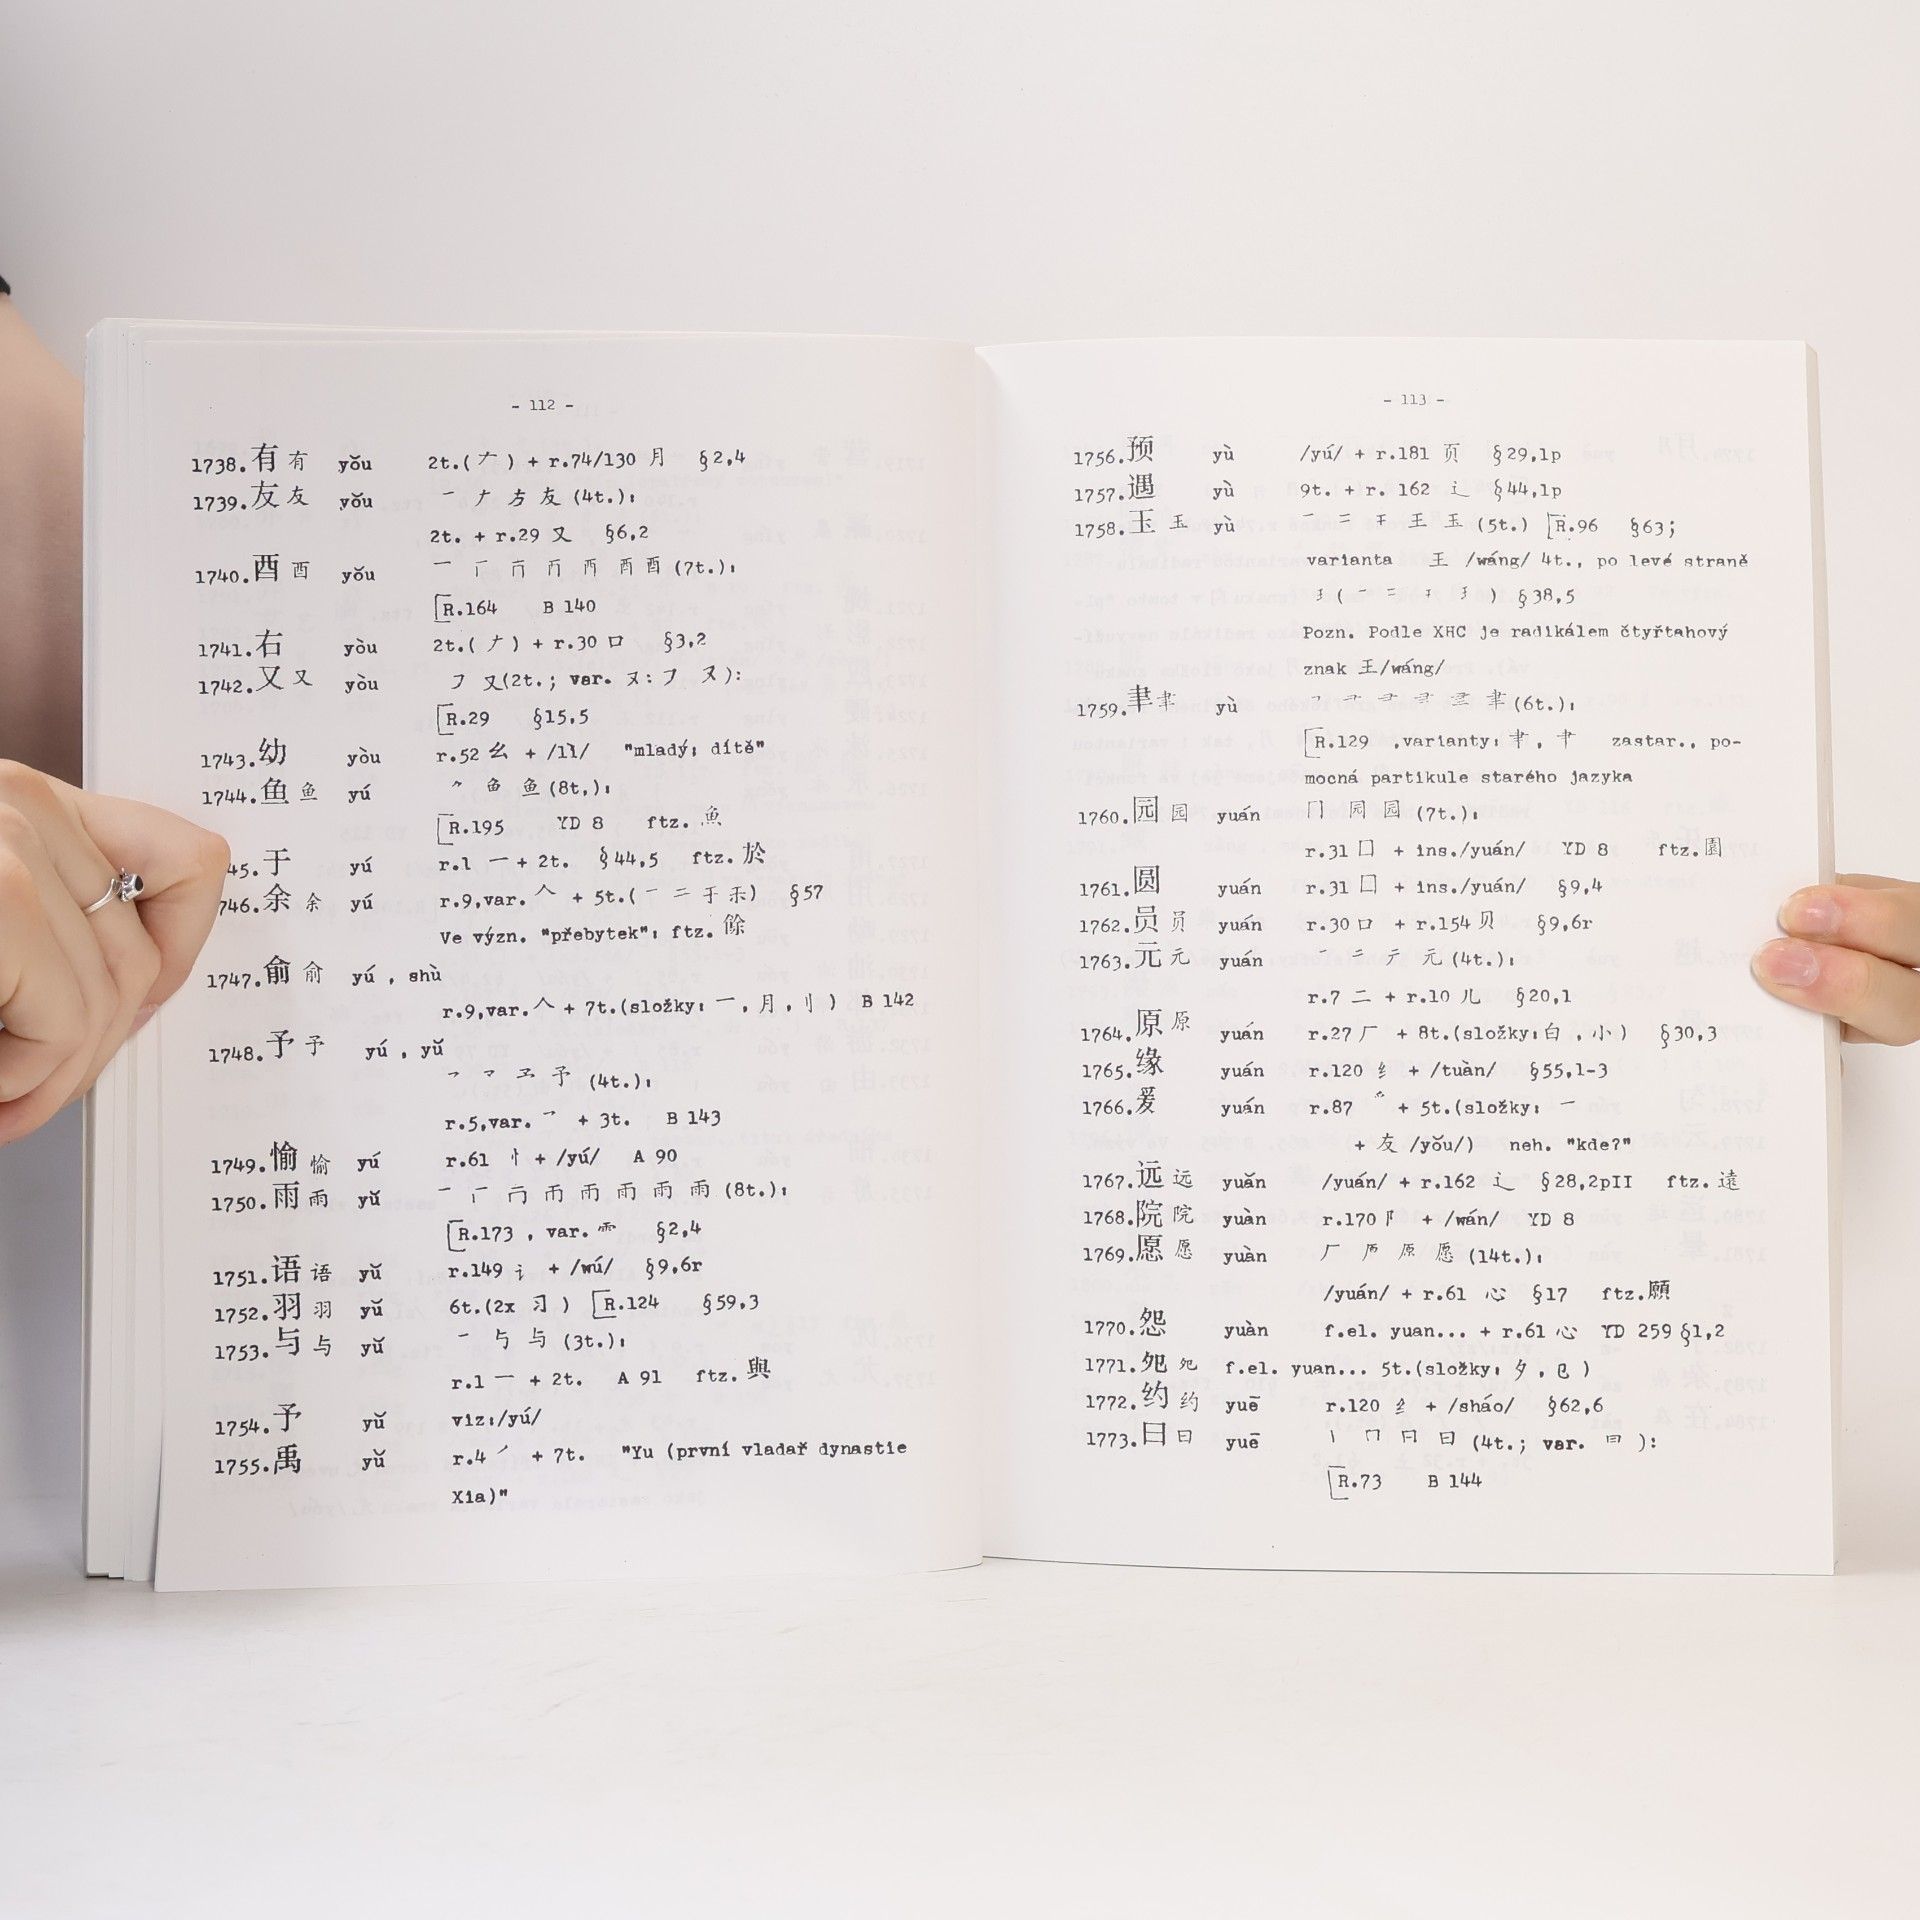 - 112 -
1738. 有 有 yǒu 2t.(𠂇) + r.74/130 月 §2,4
1739. 友 友 yǒu 一 ナ 方 友 (4t.):
2t. + r.29 又 §6,2
1740. 酉 酉 yǒu 一 酉 (7t.):
R.164 B 140
1741. 右 yòu 2t.(𠂇) + r.30 口 §3,2
1742. 又 又 yòu フ 又(2t.; var. ヌ: フ ヌ):
R.29 §15,5
1743. 幼 yòu r.52 幺 + /lì/ "mladý; dítě"
1744. 鱼 鱼 yú 鱼 (8t,):
R.195 YD 8 ftz. 魚
45. 于 yú r.1 一 + 2t. §44,5 ftz. 於
746. 余 余 yú r.9,var. 𠆢 + 5t.( 一 二 于 ) §57
Ve význ. "přebytek": ftz. 餘
1747. 俞 俞 yú , shù
r.9,var. 𠆢 + 7t.(složky: 一 , 月 , 刂 ) B 142
1748. 予 予 yú , yǔ
予 (4t.):
r.5,var. 乛 + 3t. B 143
1749. 愉 愉 yú r.61 忄 + /yú/ A 90
1750. 雨 雨 yǔ 一 雨 (8t.):
R.173 , var. ⻗ §2,4
1751. 语 语 yǔ r.149 讠 + /wú/ §9,6r
1752. 羽 羽 yǔ 6t.(2x 习 ) R.124 §59,3
1753. 与 与 yǔ 一 与 与 (3t.):
r.1 一 + 2t. A 91 ftz. 與
1754. 予 yǔ viz:/yú/
1755. 禹 yǔ r.4 ノ + 7t. "Yu (první vladař dynastie
Xia)"
- 113 -
1756. 预 yù /yú/ + r.181 页 §29,1p
1757. 遇 yù 9t. + r. 162 辶 §44,1p
1758. 玉 玉 yù 一 二 干 王 玉 (5t.) R.96 §63;
varianta 王 /wáng/ 4t., po levé straně
( 一 二 ) §38,5
Pozn. Podle XHC je radikálem čtyřtahový
znak 王/wáng/
1759. 聿 聿 yù 聿 (6t.):
R.129 ,varianty: , zastar., po-
mocná partikule starého jazyka
1760. 园 园 yuán 冂 园 园 (7t.):
r.31 囗 + ins./yuán/ YD 8 ftz. 園
1761. 圆 yuán r.31 囗 + ins./yuán/ §9,4
1762. 员 员 yuán r.30 口 + r.154 贝 §9,6r
1763. 元 元 yuán 一 二 元 (4t.):
r.7 二 + r.10 儿 §20,1
1764. 原 原 yuán r.27 厂 + 8t.(složky: 白 , 小 ) §30,3
1765. 缘 yuán r.120 纟 + /tuàn/ §55,1-3
1766. 爰 yuán r.87 爫 + 5t.(složky: 一
+ 友 /yǒu/) neh. "kde?"
1767. 远 远 yuǎn /yuán/ + r.162 辶 §28,2pII ftz. 遠
1768. 院 院 yuàn r.170 阝 + /wán/ YD 8
1769. 愿 愿 yuàn 厂 原 愿 (14t.):
/yuán/ + r.61 心 §17 ftz. 願
1770. 怨 yuàn f.el. yuan... + r.61 心 YD 259 §1,2
1771. 夗 夗 f.el. yuan... 5t.(složky: 夕 , 㔾 )
1772. 约 约 yuē r.120 纟 + /sháo/ §62,6
1773. 曰 曰 yuē 丨 冂 曰 (4t.; var. ):
R.73 B 144